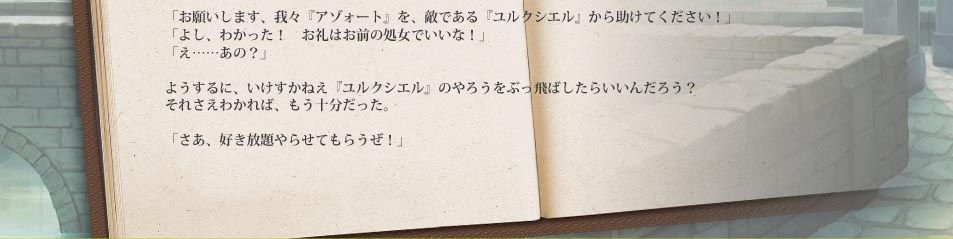 「お願いします、我々『アゾォート』を、敵である『ユルクシエル』から助けてください！」
「よし、わかった！　お礼はお前の処女でいいな！」
「え……あの？」
ようするに、いけすかねえ『ユルクシエル』のやろうをぶっ飛ばしたらいいんだろう？
それさえわかれば、もう十分だった。
「さあ、好き放題やらせてもらうぜ！」